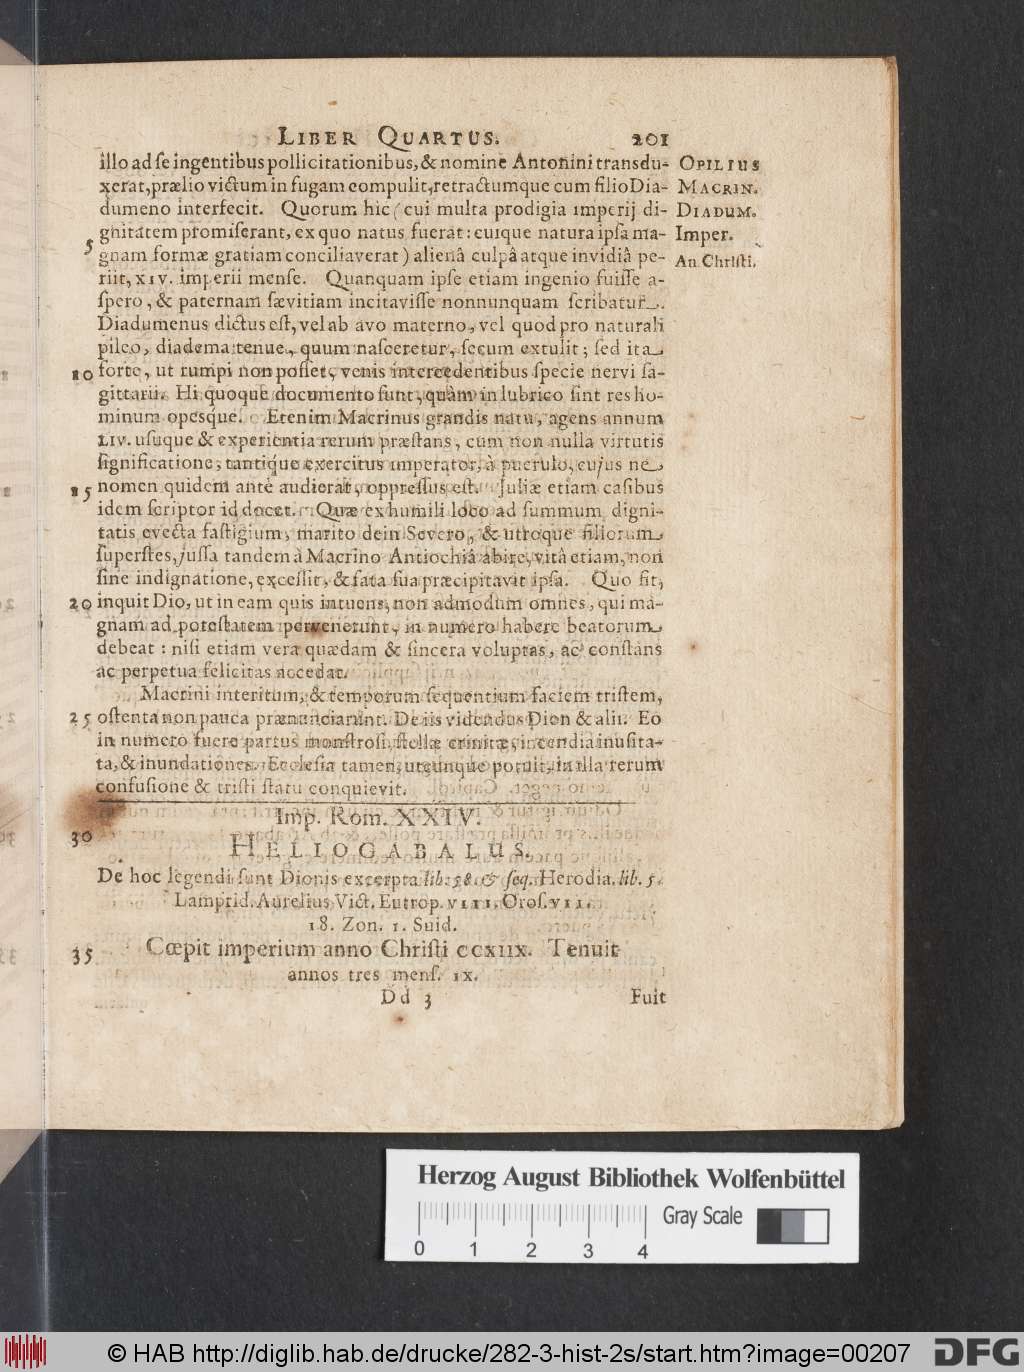 LIBER QUARTUS. 201
illo ad se ingentibus pollicitationibus, & nomine Antonini transdu-
xerat, prælio victum in fugam compulit, retractumque cum filio Dia-
dumeno interfecit. Quorum hic (cui multa prodigia imperij di-
gnitatem promiserant, ex quo natus fuerat: cuique natura ipsa ma-
5 gnam formæ gratiam conciliaverat) alienâ culpâ atque invidiâ pe-
riit, XIV. imperii mense. Quanquam ipse etiam ingenio fuisse a-
spero, & paternam sævitiam incitavisse nonnunquam scribatur.
Diadumenus dictus est, vel ab avo materno, vel quod pro naturali
pileo, diadema tenue, quum nasceretur, secum extulit; sed ita
10 forte, ut rumpi non posset, venis intercedentibus specie nervi sa-
gittarii. Hi quoque documento sunt, quàm in lubrico sint res ho-
minum opesque. Etenim Macrinus grandis natu, agens annum
LIV. usuque & experientia rerum præstans, cum non nulla virtutis
significatione; tantique exercitus imperator, à puerulo, cujus ne
15 nomen quidem antè audierat, oppressus est. Juliæ etiam casibus
idem scriptor id docet. Quæ ex humili loco ad summum digni-
tatis evecta fastigium, marito dein Severo, & utroque filiorum
superstes, jussa tandem à Macrino Antiochiâ abire, vitâ etiam, non
sine indignatione, excessit, & fata sua præcipitavit ipsa. Quo fit,
20 inquit Dio, ut in eam quis intuens, non admodum omnes, qui ma-
gnam ad potestatem pervenerunt, in numero habere beatorum
debeat: nisi etiam vera quædam & sincera voluptas, ac constans
ac perpetua felicitas accedat.
Macrini interitum, & temporum sequentium faciem tristem,
25 ostenta non pauca prænunciarunt. De iis videndus Dion & alii. Eo
in numero fuere partus monstrosi, stellæ crinitæ, incendia inusita-
ta, & inundationes. Ecclesia tamen, utcunque potuit, in illa rerum
confusione & tristi statu conquievit.
OPILIUS
MACRIN.
DIADUM.
Imper.
An. Christi.
Imp. Rom. XXIV.
30 HELIOGABALUS.
De hoc legendi sunt Dionis excerpta lib. 58. & seq. Herodia. lib. 5.
Lamprid. Aurelius Vict. Eutrop. VIII. Oros. VII.
18. Zon. 1. Suid.
35 Cœpit imperium anno Christi CCXIIX. Tenuit
annos tres mens. IX.
Dd 3 Fuit
Herzog August Bibliothek Wolfenbüttel
Gray Scale
0 1 2 3 4
© HAB http://diglib.hab.de/drucke/282-3-hist-2s/start.htm?image=00207
DFG